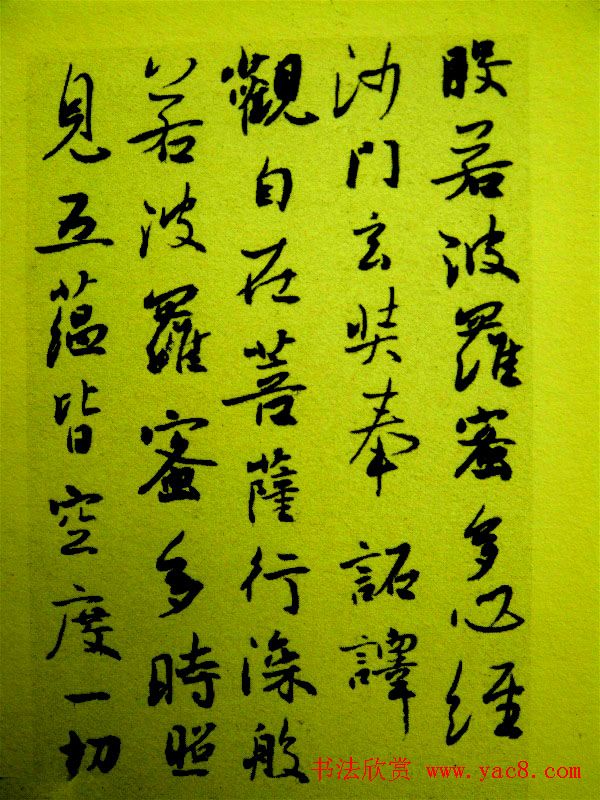 般若波羅蜜多心經
沙門玄奘奉詔譯
觀自在菩薩行深般
若波羅蜜多時照
見五蘊皆空度一切
书法欣赏 www.yac8.com